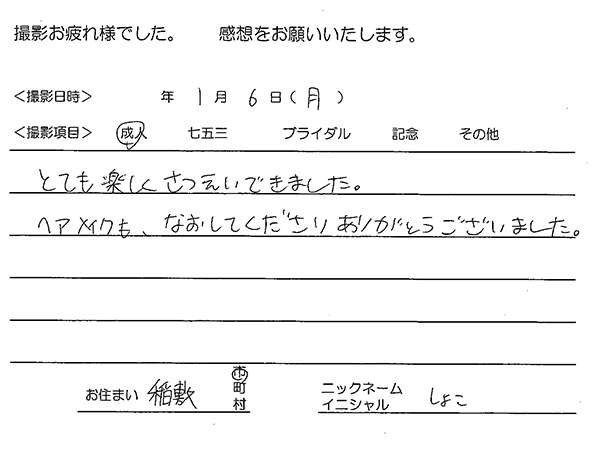 撮影お疲れ様でした。 感想をお願いいたします。
<撮影日時> 年 1月 6日(月)
<撮影項目> 成人 七五三 ブライダル 記念 その他
とても楽しくさつえいできました。
ヘアメイクも、なおしてくださりありがとうございました。
お住まい 稲敷 市町村 ニックネーム イニシャル しょこ